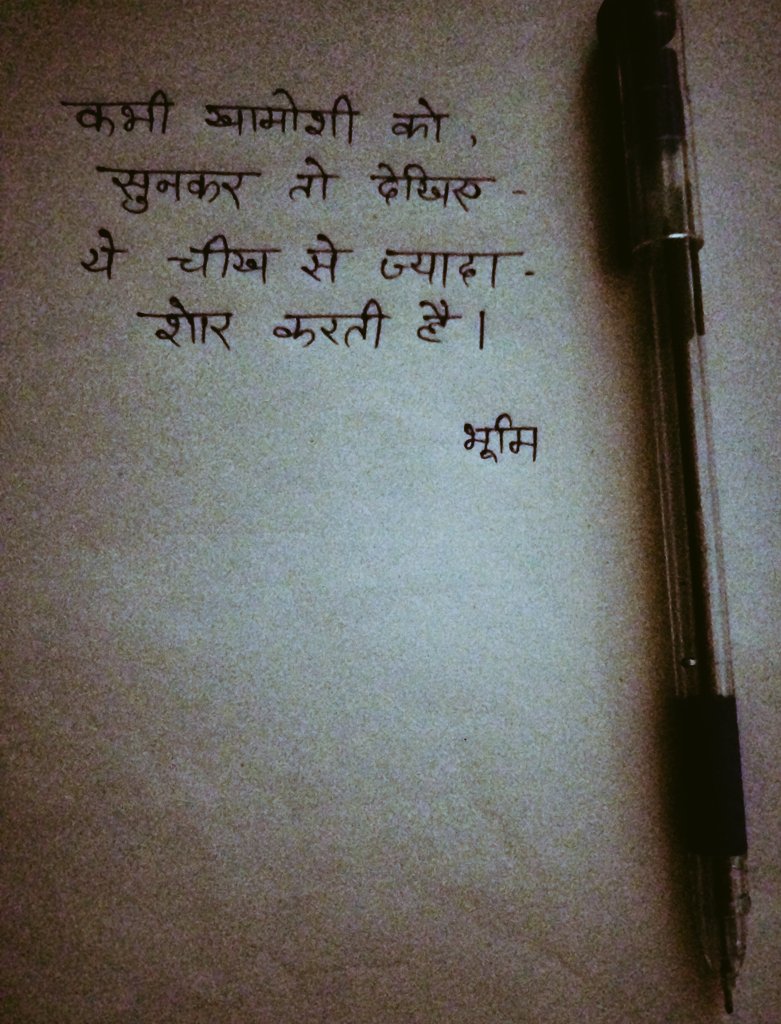 कभी खामोशी को,
सुनकर तो देखिए -
ये चीख से ज्यादा -
शोर करती है।
भूमि